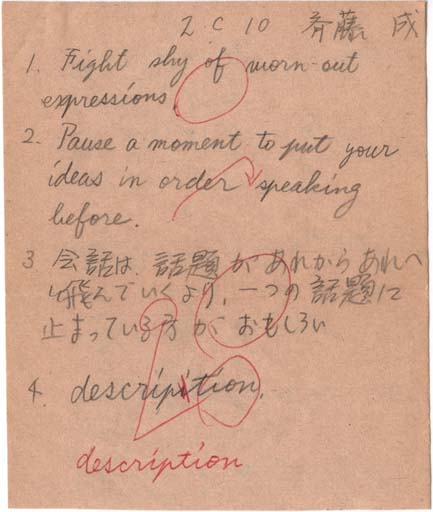 2 C 10 斉藤 成
1. Fight shy of worn-out
expressions.
2. Pause a moment to put your
ideas in order speaking
before.
3 会話は、話題があれからあれへ
飛んでいくより、一つの話題に
止まっている方がおもしろい
4. descripition.
description